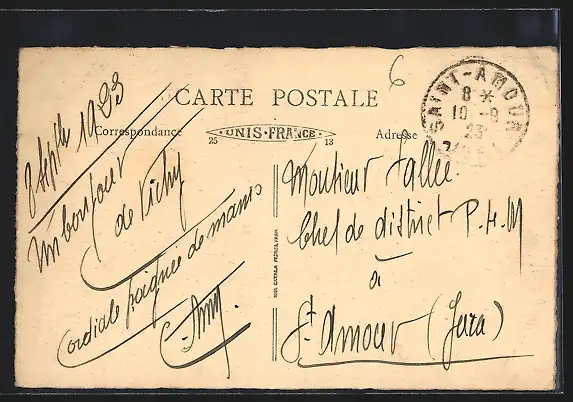 CARTE POSTALE
Correspondance
25 UNIS-FRANCE 13
Adresse
6
SAINT-AMOUR
8 *
10 - 9
23
8 Septbre 1923
Un bonjour
de Vichy
Cordiale poignée de mains
Monsieur Vallée
Chef de district P-L-M
à
St Amour (Jura)